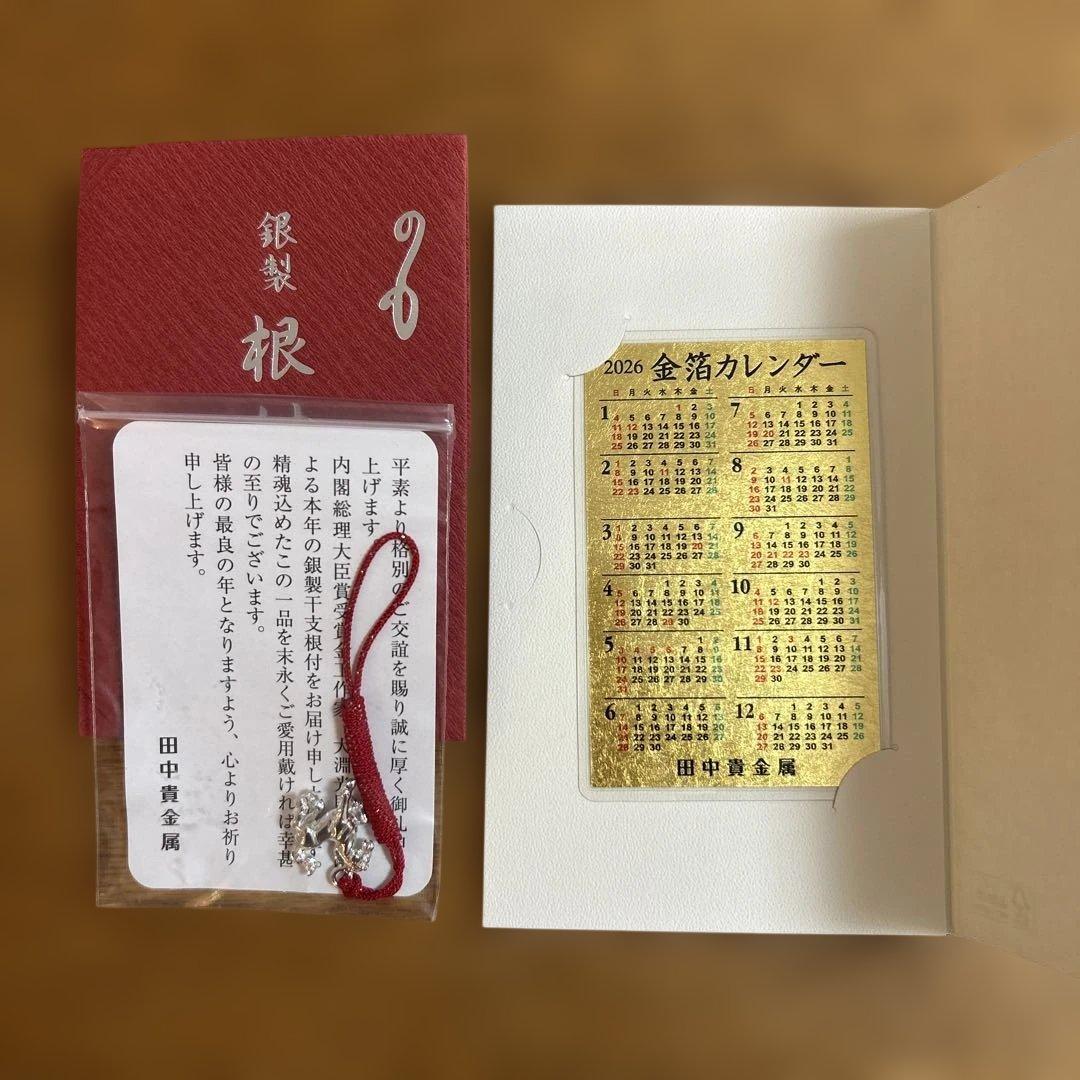 銀製
根
平素より格別のご交誼を賜り誠に厚く御礼
上げます
内閣総理大臣賞受賞金工作家 大淵
よる本年の銀製干支根付をお届け申し
精魂込めたこの一品を末永くご愛用戴ければ幸甚
の至りでございます。
皆様の最良の年となりますよう、心よりお祈り
申し上げます。
田中貴金属
2026 金箔カレンダー
日 月 火 水 木 金 土
1
1 2 3
4 5 6 7 8 9 10
11 12 13 14 15 16 17
18 19 20 21 22 23 24
25 26 27 28 29 30 31
2
1 2 3 4 5 6 7
8 9 10 11 12 13 14
15 16 17 18 19 20 21
22 23 24 25 26 27 28
3
1 2 3 4 5 6 7
8 9 10 11 12 13 14
15 16 17 18 19 20 21
22 23 24 25 26 27 28
29 30 31
4
1 2 3 4
5 6 7 8 9 10 11
12 13 14 15 16 17 18
19 20 21 22 23 24 25
26 27 28 29 30
5
1 2
3 4 5 6 7 8 9
10 11 12 13 14 15 16
17 18 19 20 21 22 23
24 25 26 27 28 29 30
31
6
1 2 3 4 5 6
7 8 9 10 11 12 13
14 15 16 17 18 19 20
21 22 23 24 25 26 27
28 29 30
日 月 火 水 木 金 土
7
1 2 3 4
5 6 7 8 9 10 11
12 13 14 15 16 17 18
19 20 21 22 23 24 25
26 27 28 29 30 31
8
1
2 3 4 5 6 7 8
9 10 11 12 13 14 15
16 17 18 19 20 21 22
23 24 25 26 27 28 29
30 31
9
1 2 3 4 5
6 7 8 9 10 11 12
13 14 15 16 17 18 19
20 21 22 23 24 25 26
27 28 29 30
10
1 2 3
4 5 6 7 8 9 10
11 12 13 14 15 16 17
18 19 20 21 22 23 24
25 26 27 28 29 30 31
11
1 2 3 4 5 6 7
8 9 10 11 12 13 14
15 16 17 18 19 20 21
22 23 24 25 26 27 28
29 30
12
1 2 3 4 5
6 7 8 9 10 11 12
13 14 15 16 17 18 19
20 21 22 23 24 25 26
27 28 29 30 31
田中貴金属